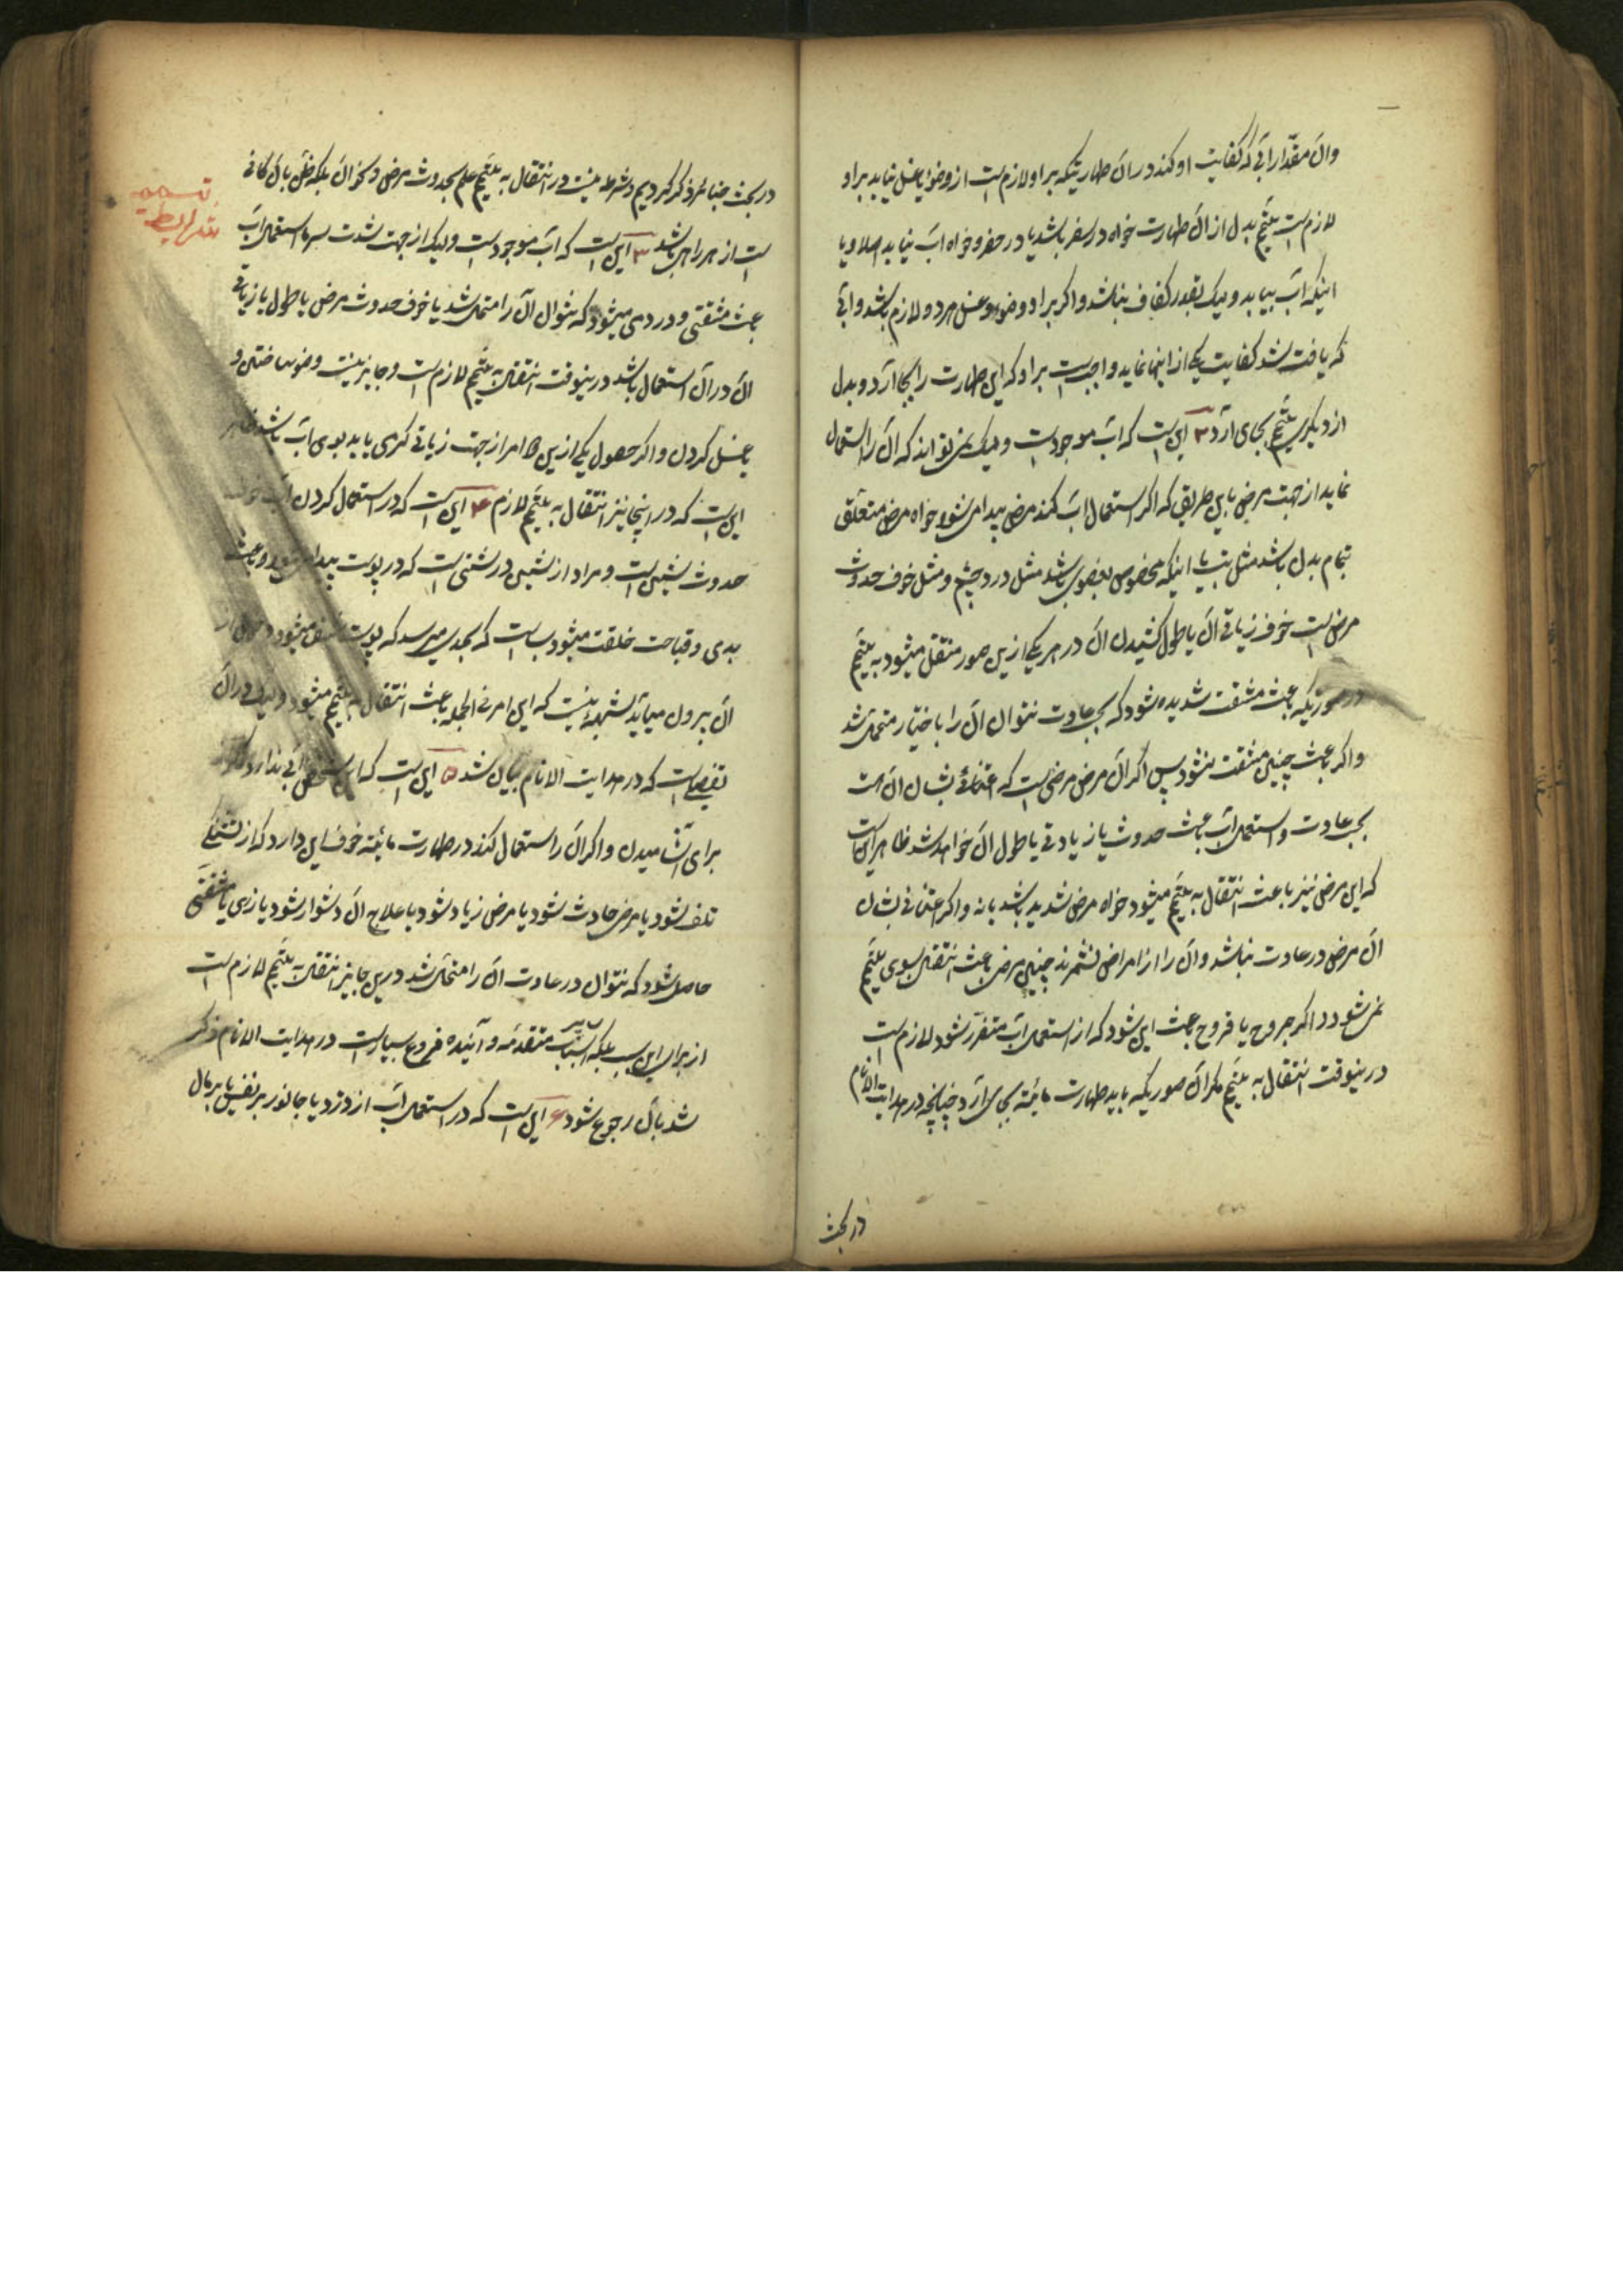 وان مقدار آبی که کفایت او کند در ان طهارتیکه بر او لازم است از وضو یا غسل نیابد بر او
لازم است تیمّم بدل از ان طهارت خواه در سفر باشد یا در حضر و خواه اب نیابد اصلا و یا
اینکه اب بیابد و لیک بقدر کفاف نباشد و اکر بر او وضوء و غسل هر دو لازم باشد و آبی
که یافت شد کفایت یکی از اینها نماید واجب است بر او که این طهارت را بجا آرد و بدل
از دیکری تیمّم بجای آرد ۲ این است که اب موجود است و لیک نمیتواند که ان را استعمال
نماید از جهت مرض باین طریق که اکر استعمال اب کند مرض پیدا میشود خواه مرض متعلّق
بتمام بدن باشد مثل تب یا اینکه مخصوص بعضوی باشد مثل درد چشم و مثل خوف حدوث
مرض است خوف زیاتی ان یا طول کشیدن ان در هر یکی ازین صور منتقل میشود به تیمّم
در صورتیکه باعث مشقت شدیده شود که بحسب عادت نتوان ان را باختیار متحمل شد
و اکر باعث چنین مشقت نشود پس اکر ان مرض مرضی است که اعتنائی بشان ان هست
بحسب عادت و استعمال اب باعث حدوث یا زیادتی یا طول ان خواهد شد ظاهر این است
که این مرض نیز باعث انتقال به تیمّم میشود خواه مرض شدید باشد یا نه و اکر اعتنائی بشان
ان مرض در عادت نباشد و ان را از امراض نشمرند چنین مرض باعث انتقال بسوی تیمّم
نمیشود و اکر جروح یا قروح باعث این شود که از استعمال اب متضرّر شود لازم است
درینوقت انتقال به تیمّم مکر ان صوریکه باید طهارت مائیّه بجای آرد چنانچه در هدایت الانام
در بحث
در بحث جبائر ذکر کردیم و شرط نیست در انتقال به تیمّم علم بحدوث مرض و نحو ان بلکه ظن بان کافی
تتمه
شرایط
است از هر راهی باشد ۳ این است که اب موجود است و لیک از جهت شدت سرما استعمال اب
باعث مشقتی و دردی میشود که نتوان ان را متحمل شد یا خوف حدوث مرض یا طول یا زیاتی
ان در ان استعمال باشد درینوقت انتقال به تیمّم لازم است و جایز نیست وضو ساختن و
یا غسل کردن و اکر حصول یکی ازین امر از جهت زیاتی کرمی یا بد بوی اب باشد ظاهر
این است که در اینجا نیز انتقال به تیمّم لازم ۴ این است که در استعمال کردن اب خوف
حدوث شینی است و مراد از شین درشتی است که در پوست پیدا میشود و باعث
بدی و قباحت خلقت میشود بسا است که بحدی میرسد که پوست میشود و خون از
ان بیرون میاید شبهه نیست که این امر فی الجمله باعث انتقال به تیمّم میشود و لیک در ان
تفصیلی است که در هدایت الانام بیان شد ۵ این است که این شخص آبی ندارد مکر
برای آشامیدن و اکر ان را استعمال کند در طهارت مائیّه خوف این دارد که از تشنکی
تلف شود یا مرض حادث شود یا مرض زیاد شود یا علاج ان دشوار شود یا زهی یا مشقتی
حاصل شود که نتوان در عادت ان را متحمل شد درین جا نیز انتقال به تیمّم لازم است
از برای این سبب بلکه اسباب متقدمه و آینده فروع بسیار است در هدایت الانام ذکر
شد بان رجوع شود ۶ این است که در استعمال اب از دزد یا جانور بر نفس یا بر مال